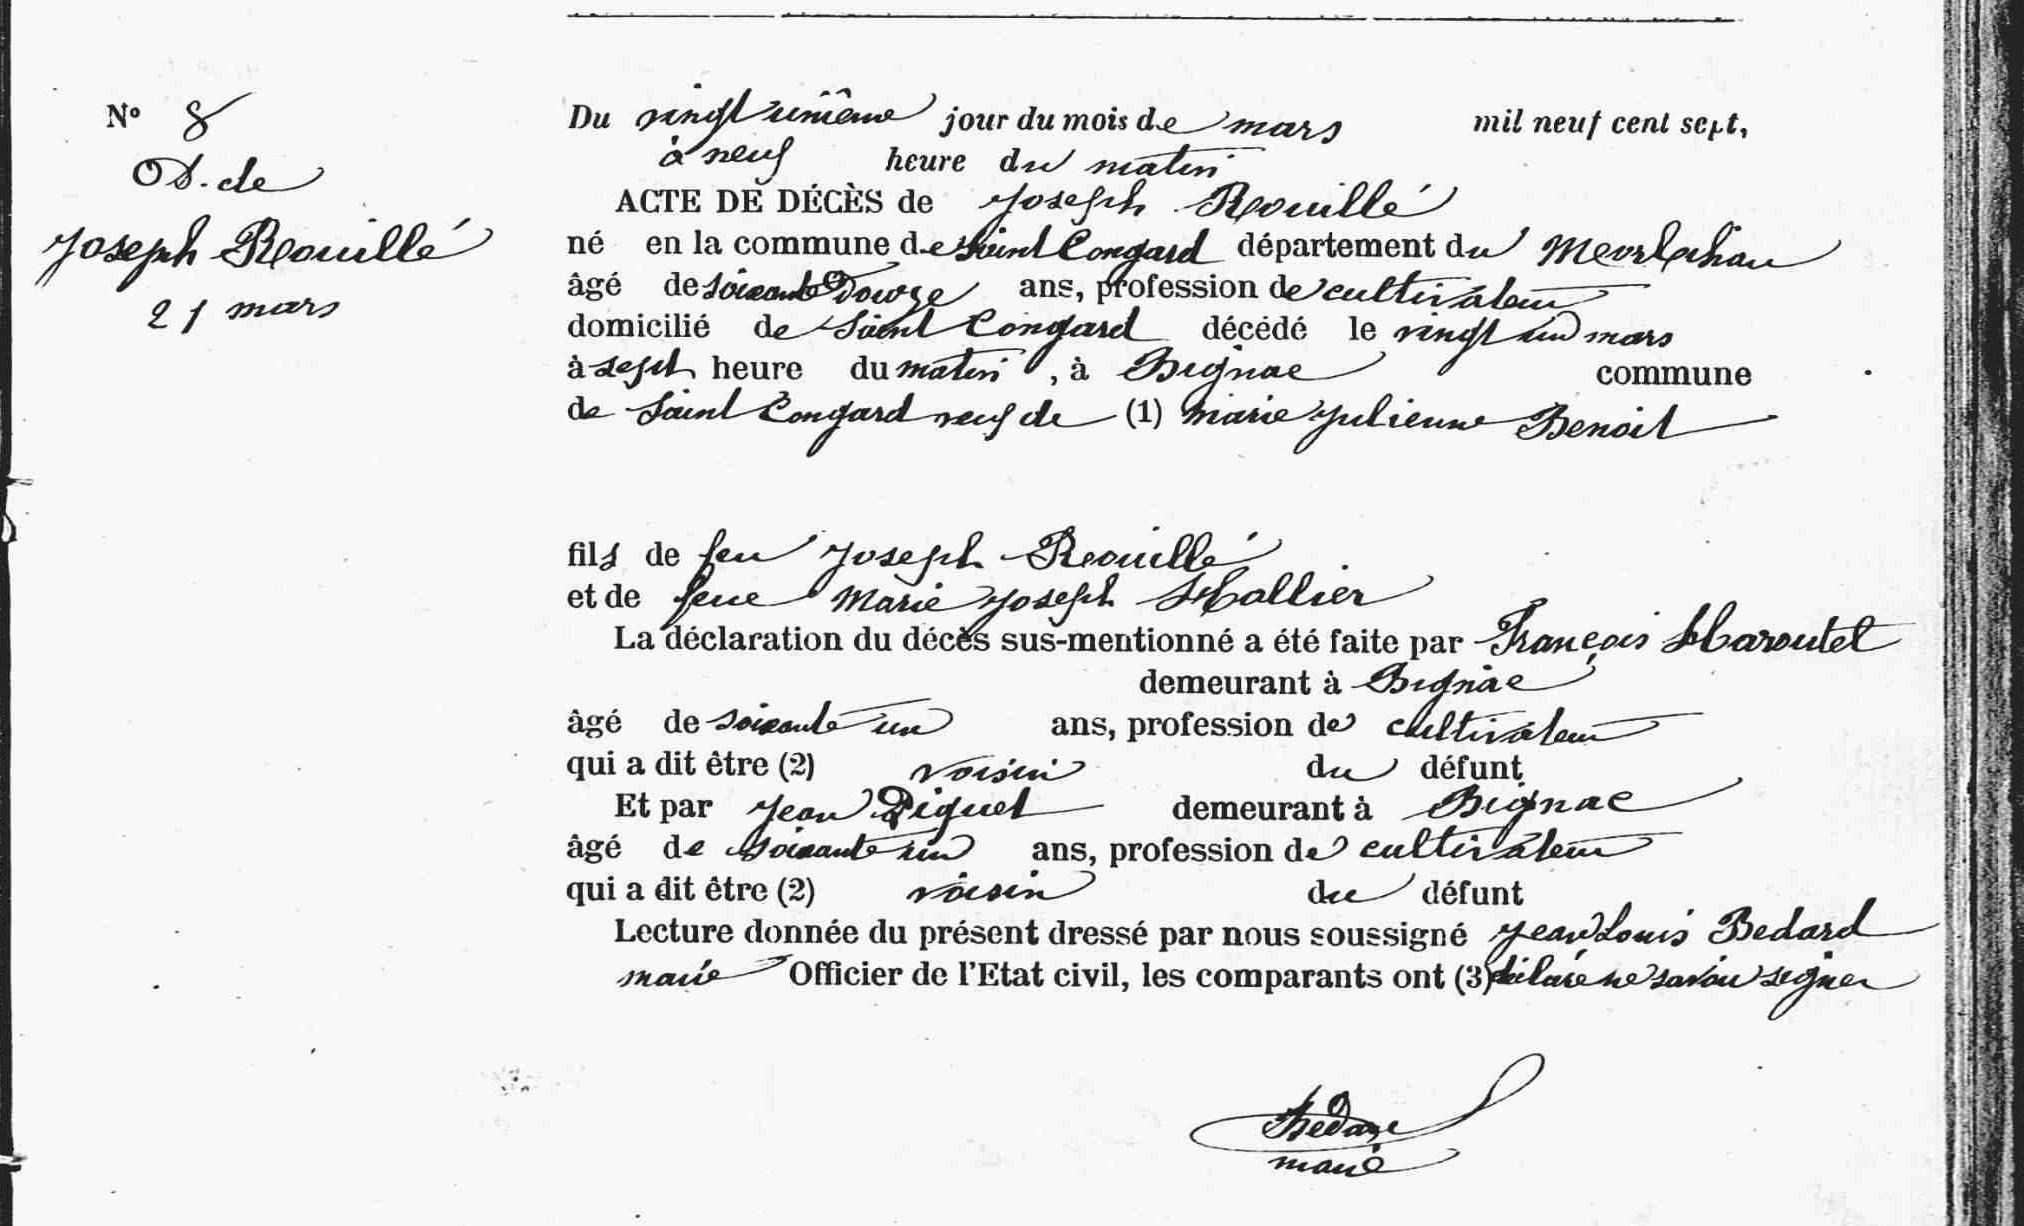 N° 8
D. de
Joseph Rouillé
21 mars
Du vingt unième jour du mois de mars mil neuf cent sept,
à neuf heure du matin
ACTE DE DÉCÈS de Joseph Rouillé
né en la commune de Saint Congard département du Morbihan
âgé de soixante Douze ans, profession de cultivateur
domicilié de Saint Congard décédé le vingt un mars
à sept heure du matin, à Bignac commune
de Saint Congard veuf de (1) Marie Julienne Benoit
fils de feu Joseph Rouillé
et de feue Marie Joseph Hallier
La déclaration du décès sus-mentionné a été faite par François
demeurant à Bignac
âgé de soixante un ans, profession de cultivateur
qui a dit être (2) voisin du défunt
Et par Jean Piguel demeurant à Bignac
âgé de soixante un ans, profession de cultivateur
qui a dit être (2) voisin du défunt
Lecture donnée du présent dressé par nous soussigné Jean Louis Bedard
maire Officier de l'Etat civil, les comparants ont (3) déclaré ne savoir signer
maire